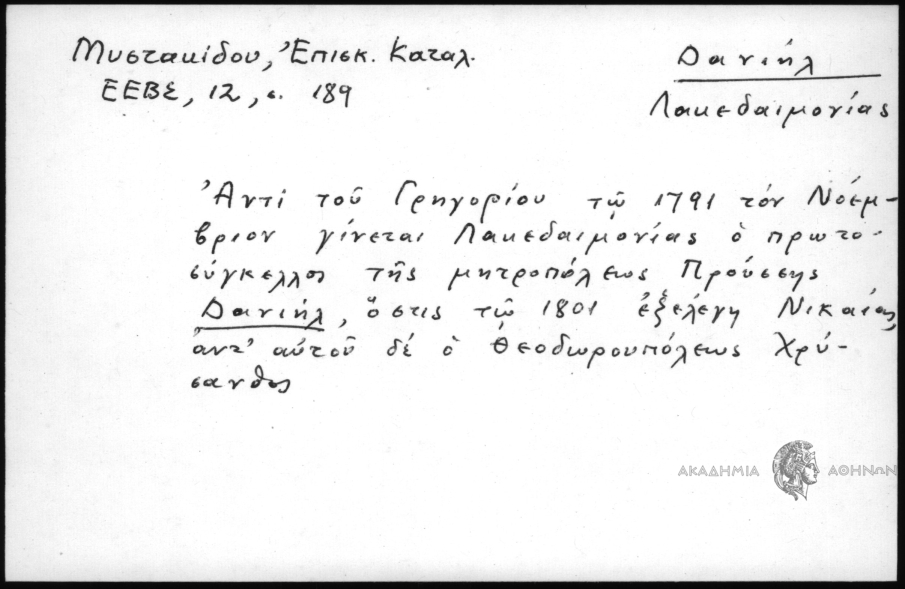 Μυστακίδου, Ἐπισκ. Καταλ.
ΕΕΒΣ, 12, σ. 189
Δανιήλ
Λακεδαιμονίας
Ἀντί τοῦ Γρηγορίου τῷ 1791 τόν Νόεμ-
βριον γίνεται Λακεδαιμονίας ὁ πρωτο-
σύγκελλος τῆς μητροπόλεως Προύσσης
Δανιήλ, ὅστις τῷ 1801 ἐξελέγη Νικαίας,
ἀντ' αὐτοῦ δέ ὁ Θεοδωρουπόλεως Χρύ-
σανθος
ΑΚΑΔΗΜΙΑ ΑΘΗΝΩΝ